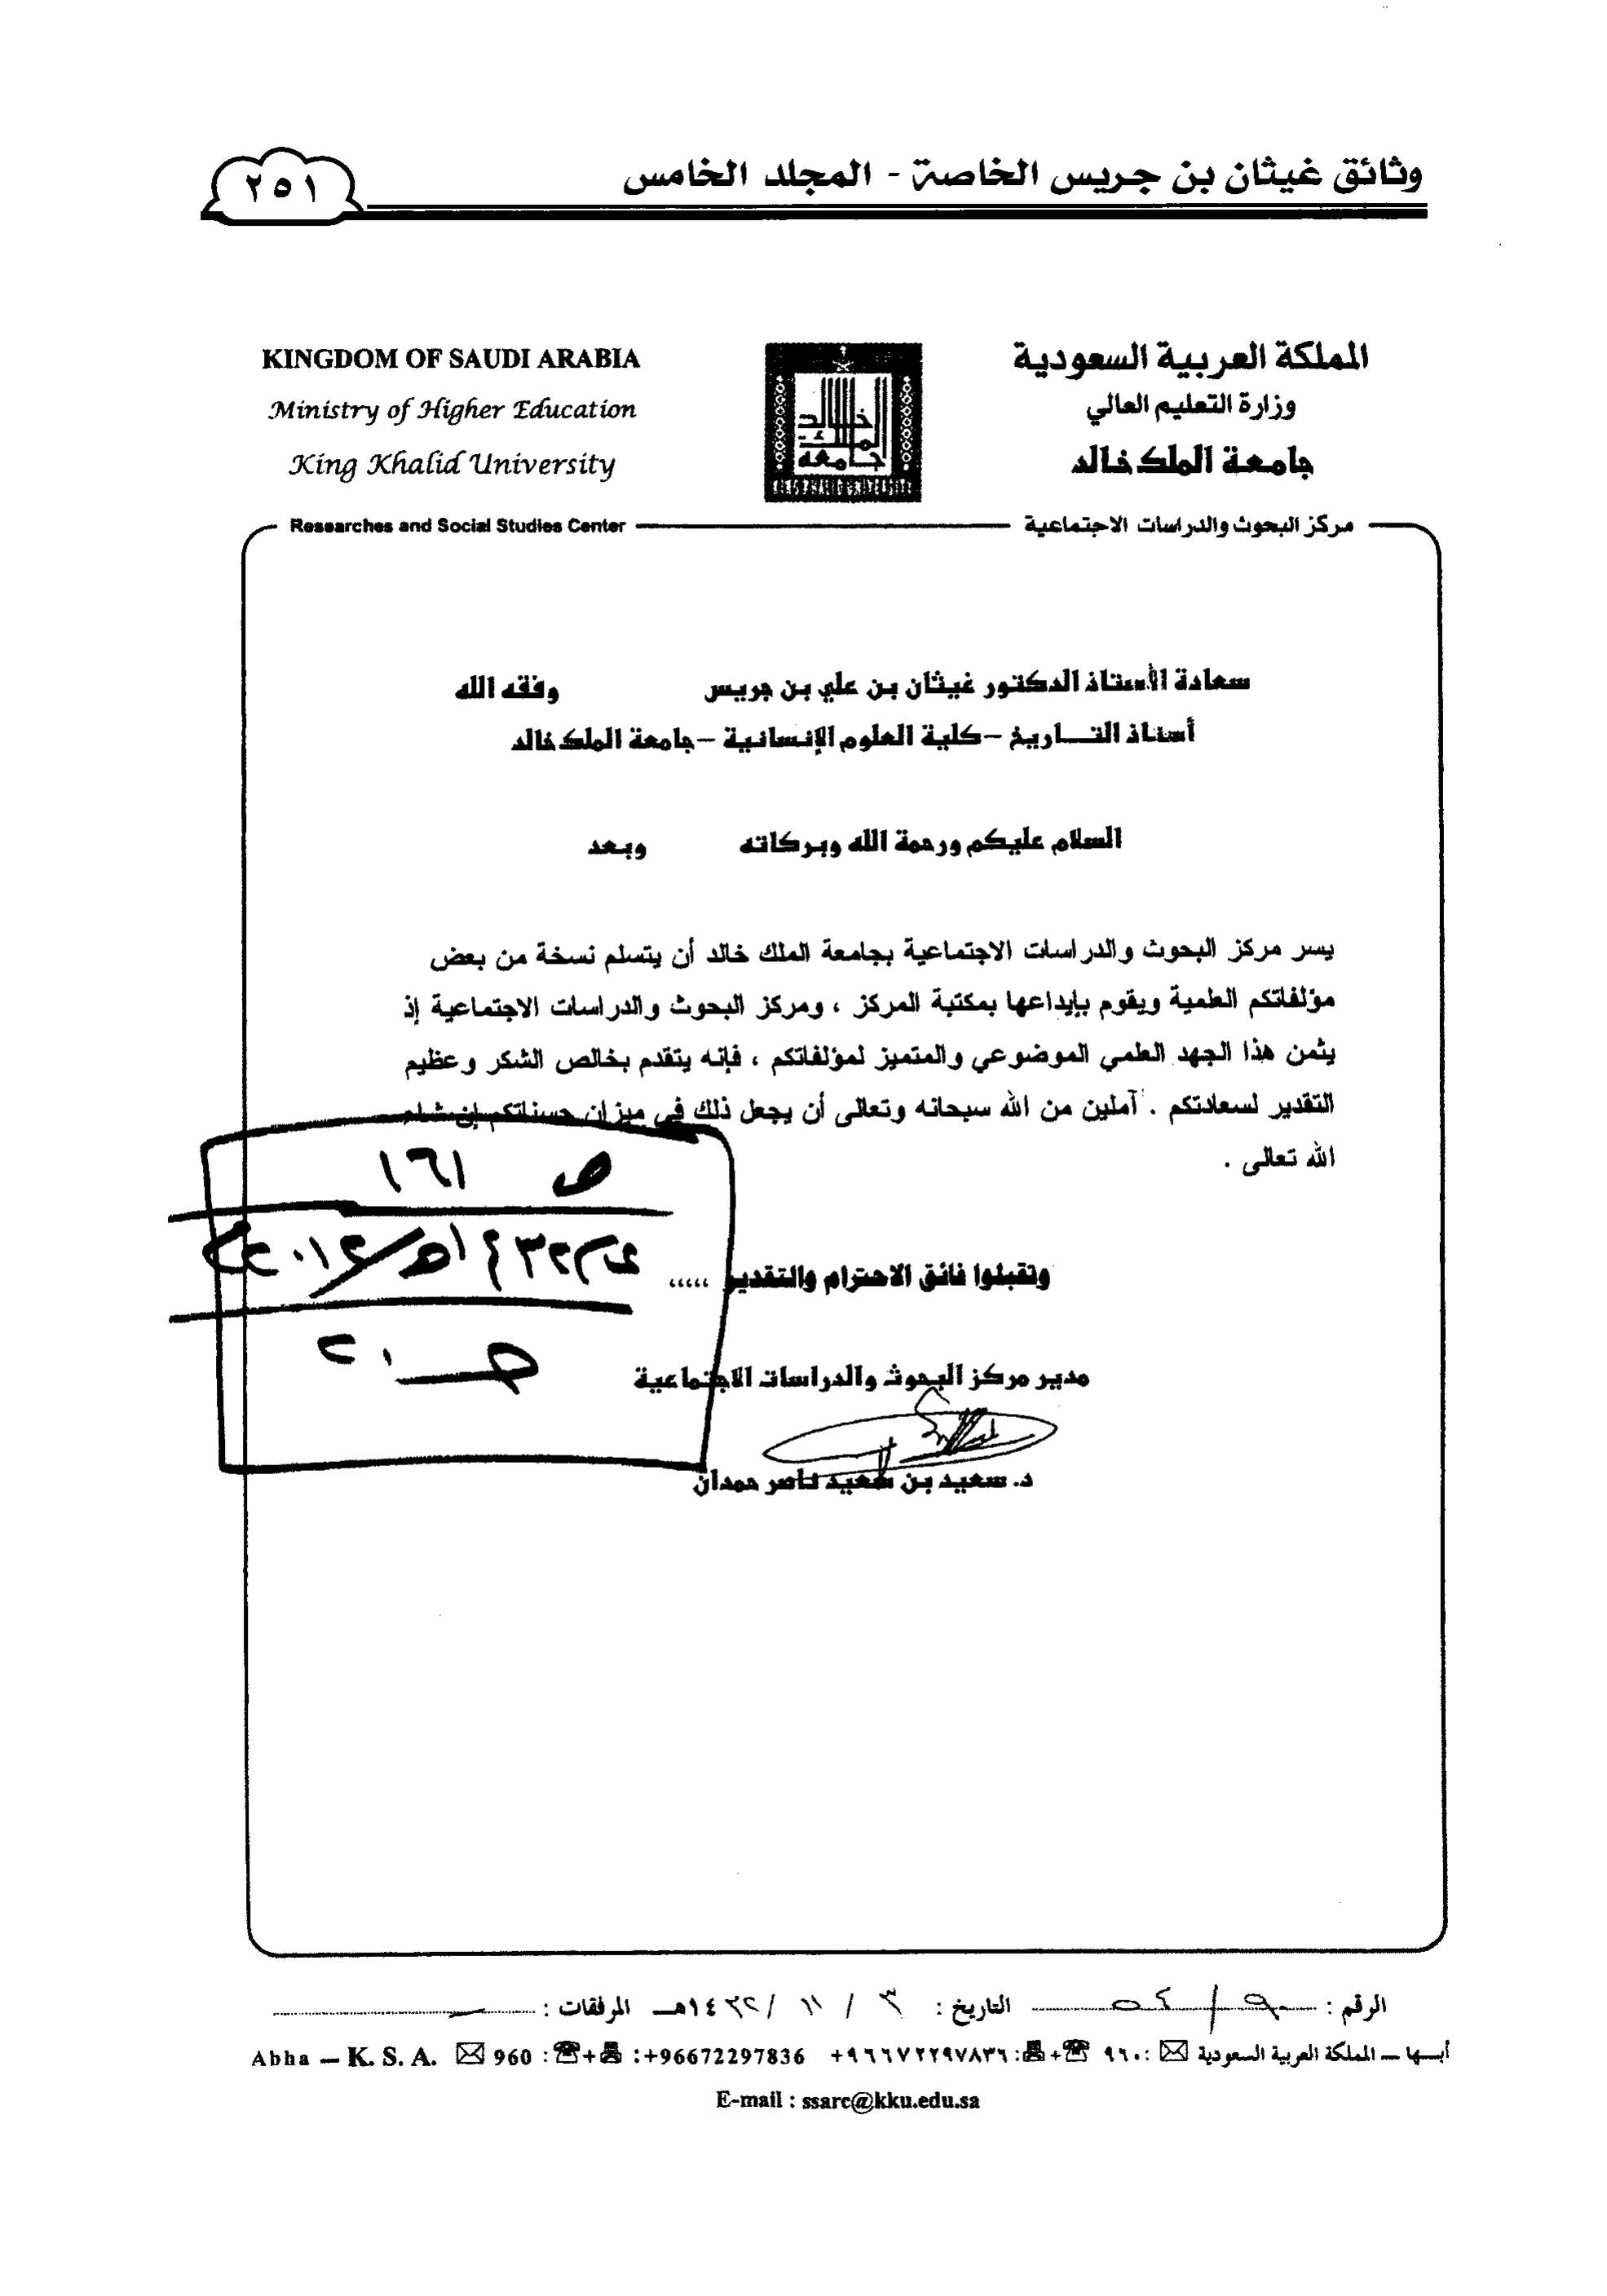 وثائق غيثان بن جريس الخاصة - المجلد الخامس
٢٥١
KINGDOM OF SAUDI ARABIA
Ministry of Higher Education
King Khalid University
المملكة العربية السعودية
وزارة التعليم العالي
جامعة الملك خالد
Researches and Social Studies Center
مركز البحوث والدراسات الاجتماعية
سعادة الأستاذ الدكتور غيثان بن علي بن جريس وفقه الله
أستاذ التـــاريخ – كلية العلوم الإنسانية – جامعة الملك خالد
السلام عليكم ورحمة الله وبركاته وبعد
يسر مركز البحوث والدراسات الاجتماعية بجامعة الملك خالد أن يتسلم نسخة من بعض
مؤلفاتكم العلمية ويقوم بإيداعها بمكتبة المركز ، ومركز البحوث والدراسات الاجتماعية إذ
يثمن هذا الجهد العلمي الموضوعي والمتميز لمؤلفاتكم ، فإنه يتقدم بخالص الشكر وعظيم
التقدير لسعادتكم . آملين من الله سبحانه وتعالى أن يجعل ذلك في ميزان حسناتكم إن شاء
الله تعالى .
ص ١٦١
وتقبلوا فائق الاحترام والتقدير .....
مدير مركز البحوث والدراسات الاجتماعية
د. سعيد بن سعيد ناصر حمدان
الرقم : ٩٠ / ٥٤ التاريخ : ٣ / ١١ / ١٤٣٢هـ المرفقات :
أبـها – المملكة العربية السعودية ٩٦٠ : +٩٦٦٧٢٢٩٧٨٣٦
Abha – K. S. A. 960 : + : +96672297836
E-mail : ssarc@kku.edu.sa